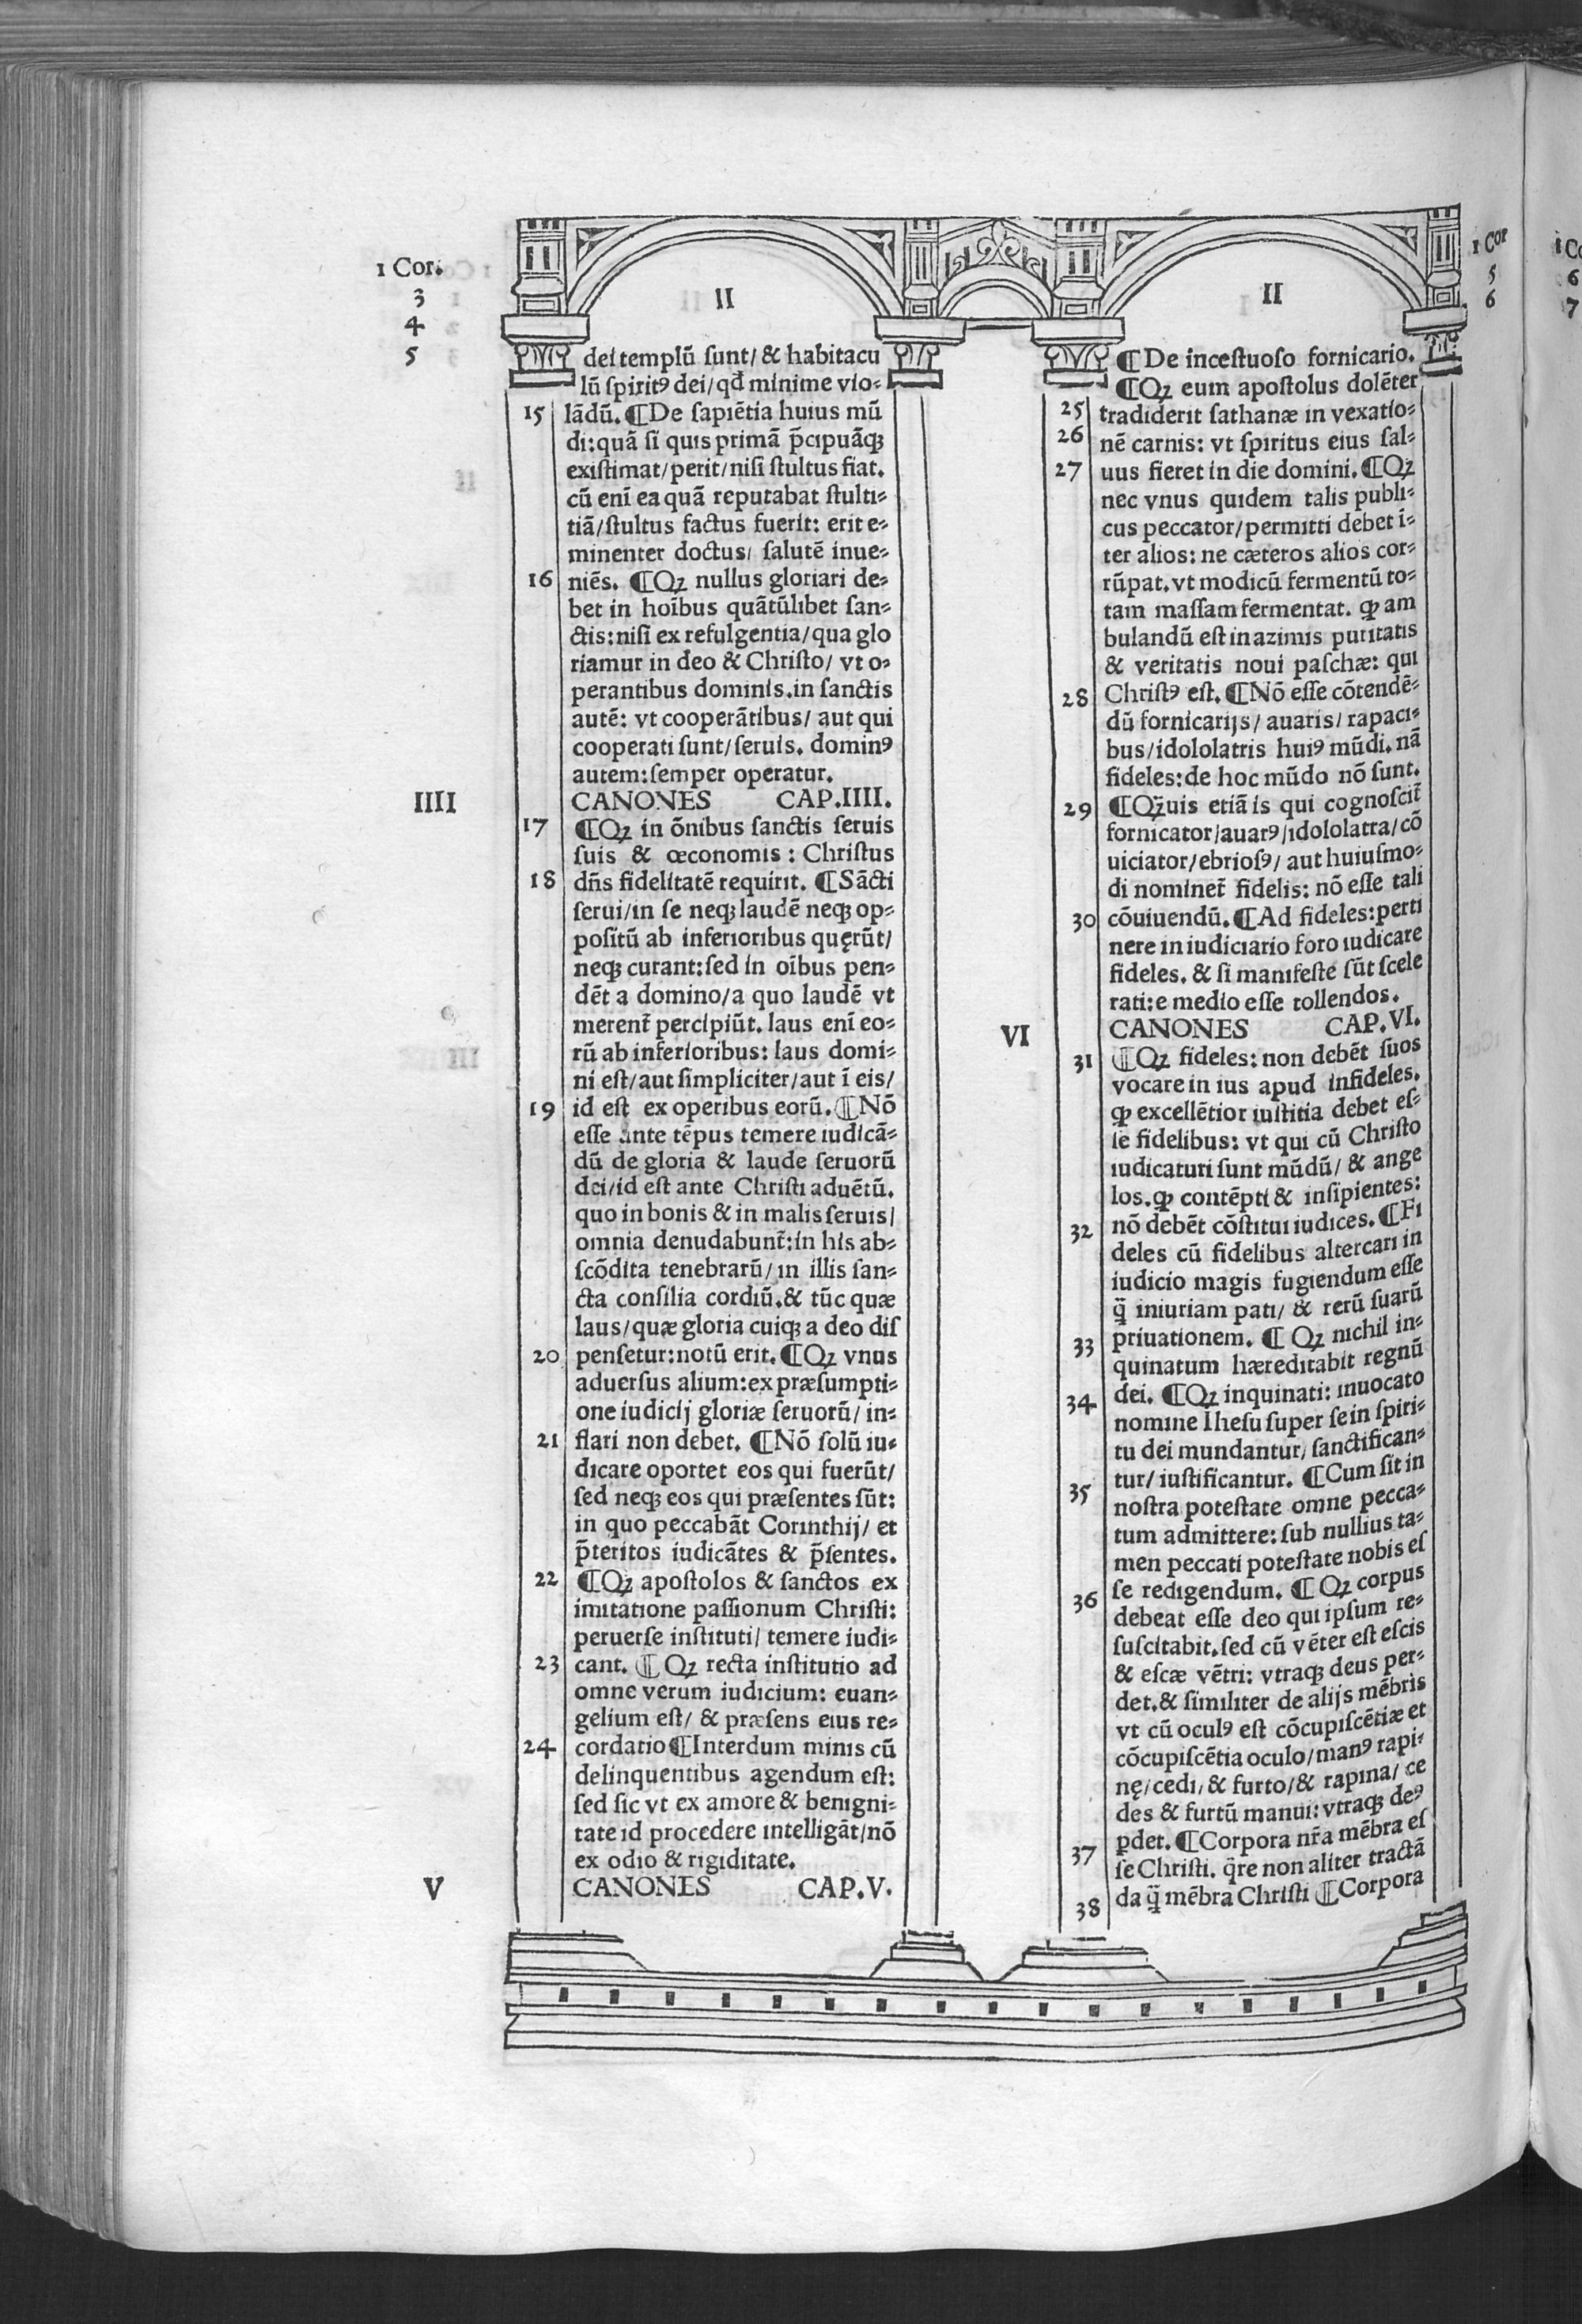 1 Cor.
3
4
5
II
dei templū sunt/ & habitacu
lū spiritꝰ dei/ qđ minime vio-
15 lādū. ¶De sapiētia huius mū
di: quā si quis primā p̄cipuāqꝫ
existimat/ perit/ nisi stultus fiat.
cū enī ea quā reputabat stulti-
tiā/ stultus factus fuerit: erit e-
minenter doctus/ salutē inue-
16 niēs. ¶Qꝫ nullus gloriari de-
bet in hoībus quātūlibet san-
ctis: nisi ex refulgentia/ qua glo
riamur in deo & Christo/ vt o-
perantibus dominis. in sanctis
autē: vt cooperātibus/ aut qui
cooperati sunt/ seruis. dominꝰ
autem: semper operatur.
IIII CANONES CAP.IIII.
17 ¶Qꝫ in ōnibus sanctis seruis
suis & œconomis : Christus
18 dn̄s fidelitatē requirit. ¶Sācti
serui/ in se neqꝫ laudē neqꝫ op-
positū ab inferioribus quęrūt/
neqꝫ curant: sed in oībus pen-
dēt a domino/ a quo laudē vt
merent̃ percipiūt. laus enī eo-
rū ab inferioribus: laus domi-
ni est/ aut simpliciter/ aut ī eis/
19 id est ex operibus eorū. ¶Nō
esse ante tēpus temere iudicā-
dū de gloria & laude seruorū
dei/ id est ante Christi aduētū.
quo in bonis & in malis seruis/
omnia denudabunt̃: in his ab-
scōdita tenebrarū/ in illis san-
cta consilia cordiū. & tūc quæ
laus/ quæ gloria cuiqꝫ a deo dis
20 pensetur: notū erit. ¶Qꝫ vnus
aduersus alium: ex præsumpti-
one iudicij gloriæ seruorū/ in-
21 flari non debet. ¶Nō solū iu-
dicare oportet eos qui fuerūt/
sed neqꝫ eos qui præsentes sūt:
in quo peccabāt Corinthij/ et
p̄teritos iudicātes & p̄sentes.
22 ¶Qꝫ apostolos & sanctos ex
imitatione passionum Christi:
peruerse instituti/ temere iudi-
23 cant. ¶Qꝫ recta institutio ad
omne verum iudicium: euan-
gelium est/ & præsens eius re-
24 cordatio ¶Interdum minis cū
delinquentibus agendum est:
sed sic vt ex amore & benigni-
tate id procedere intelligāt/ nō
ex odio & rigiditate.
V CANONES CAP.V.
1 Cor
5
6
II
¶De incestuoso fornicario.
¶Qꝫ eum apostolus dolēter
25 tradiderit sathanæ in vexatio-
26 nē carnis: vt spiritus eius sal-
27 uus fieret in die domini. ¶Qꝫ
nec vnus quidem talis publi-
cus peccator/ permitti debet ī-
ter alios: ne cæteros alios cor-
rūpat. vt modicū fermentū to-
tam massam fermentat. ꝙ am
bulandū est in azimis puritatis
& veritatis noui paschæ: qui
28 Christꝰ est. ¶Nō esse cōtendē-
dū fornicarijs/ auaris/ rapaci-
bus/ idololatris huiꝰ mūdi. nā
fideles: de hoc mūdo nō sunt.
29 ¶Qꝫuis etiā is qui cognoscit̃
fornicator/ auarꝰ/ idololatra/ cō
uiciator/ ebriosꝰ/ aut huiusmo-
di nominet̃ fidelis: nō esse tali
30 cōuiuendū. ¶Ad fideles: perti
nere in iudiciario foro iudicare
fideles. & si manifeste sūt scele
rati: e medio esse tollendos.
VI CANONES CAP.VI.
31 ¶Qꝫ fideles: non debēt suos
vocare in ius apud infideles.
ꝙ excellētior iustitia debet es-
se fidelibus: vt qui cū Christo
iudicaturi sunt mūdū/ & ange
los. ꝙ contēpti & insipientes:
32 nō debēt cōstitui iudices. ¶Fi
deles cū fidelibus altercari in
iudicio magis fugiendum esse
q̄̃ iniuriam pati/ & rerū suarū
33 priuationem. ¶Qꝫ nichil in-
quinatum hæreditabit regnū
34 dei. ¶Qꝫ inquinati: inuocato
nomine Ihesu super se in spiri-
tu dei mundantur/ sanctifican-
tur/ iustificantur. ¶Cum sit in
35 nostra potestate omne pecca-
tum admittere: sub nullius ta-
men peccati potestate nobis es
36 se redigendum. ¶Qꝫ corpus
debeat esse deo qui ipsum re-
suscitabit. sed cū vēter est escis
& escæ vētri: vtraqꝫ deus per-
det. & similiter de alijs mēbris
vt cū oculꝰ est cōcupiscētiæ et
cōcupiscētia oculo/ manꝰ rapi-
nę/ cedi/ & furto/ & rapina/ ce
des & furtū manui: vtraqꝫ deꝰ
37 ꝑdet. ¶Corpora nr̄a mēbra es
se Christi. q̄re non aliter tractā
38 da q̄̃ mēbra Christi ¶Corpora
1 Co
6
7